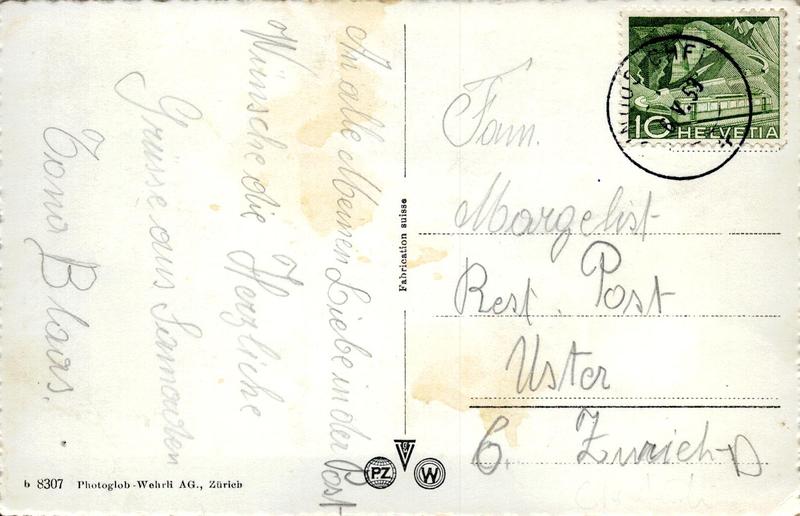 An alle Meinen Liebe in der Post
Wünsche die Herzliche
Grüsse aus
Blaas.
b 8307 Photoglob-Wehrli AG., Zürich
Fabrication suisse
PZ
W
10 HELVETIA
Fam.
Margelist
Rest. Post
Uster
Zürich